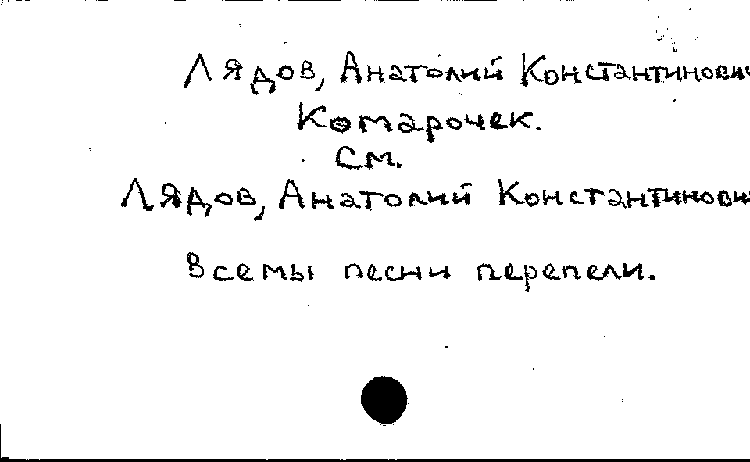 Лядов, Анатолий Константинович
Комарочек.
см.
Лядов, Анатолий Константинович
Всемы песни перепели.